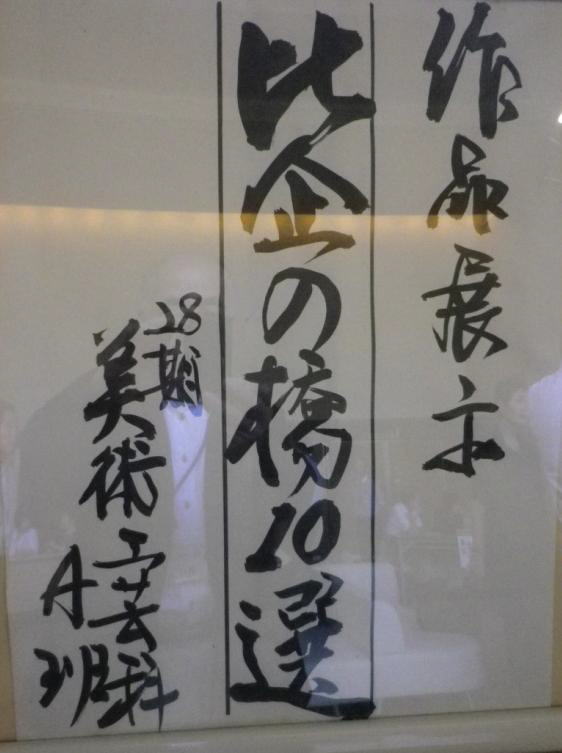 作品展示
比企の橋10選
28期
美術工芸科
A班